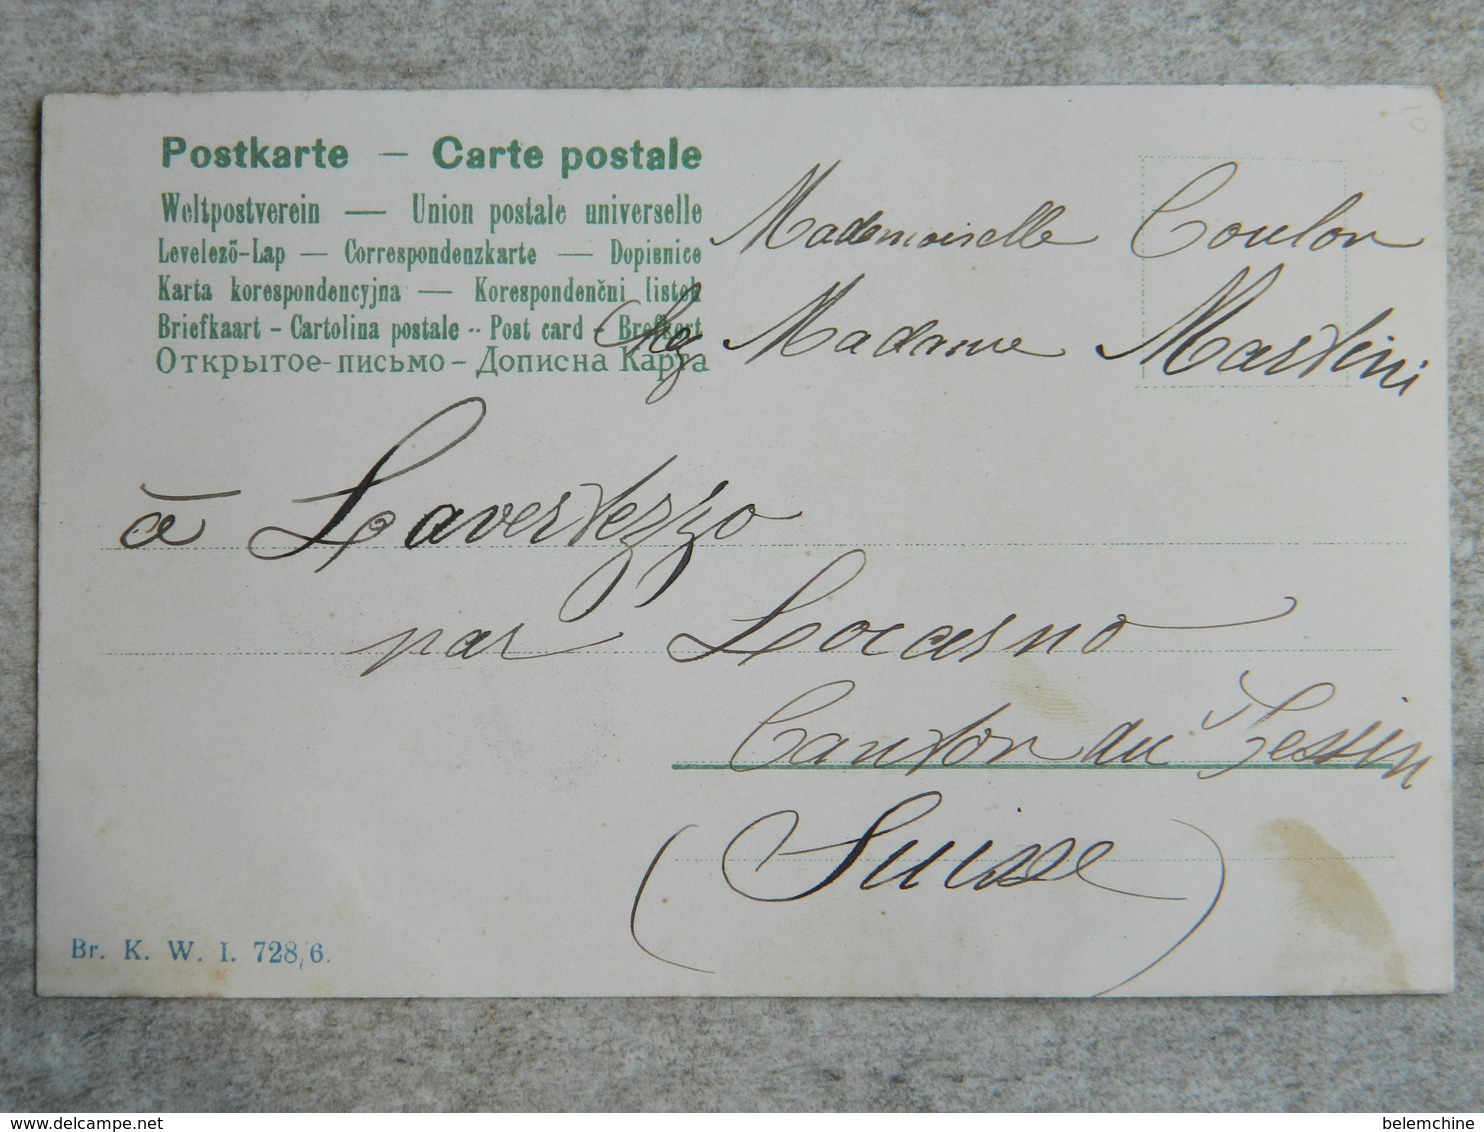 Postkarte – Carte postale
Weltpostverein — Union postale universelle
Levelező-Lap — Correspondenzkarte — Dopisnice
Karta korespondencyjna — Korespondenčni listek
Briefkaart – Cartolina postale - Post card – Brefkort
Открытое-письмо – Дописна Карта
Mademoiselle Coulon
chez Madame Martini
à Lavertezzo
par Locarno
Canton du Tessin
(Suisse)
Br. K. W. I. 728/6.
belemchine